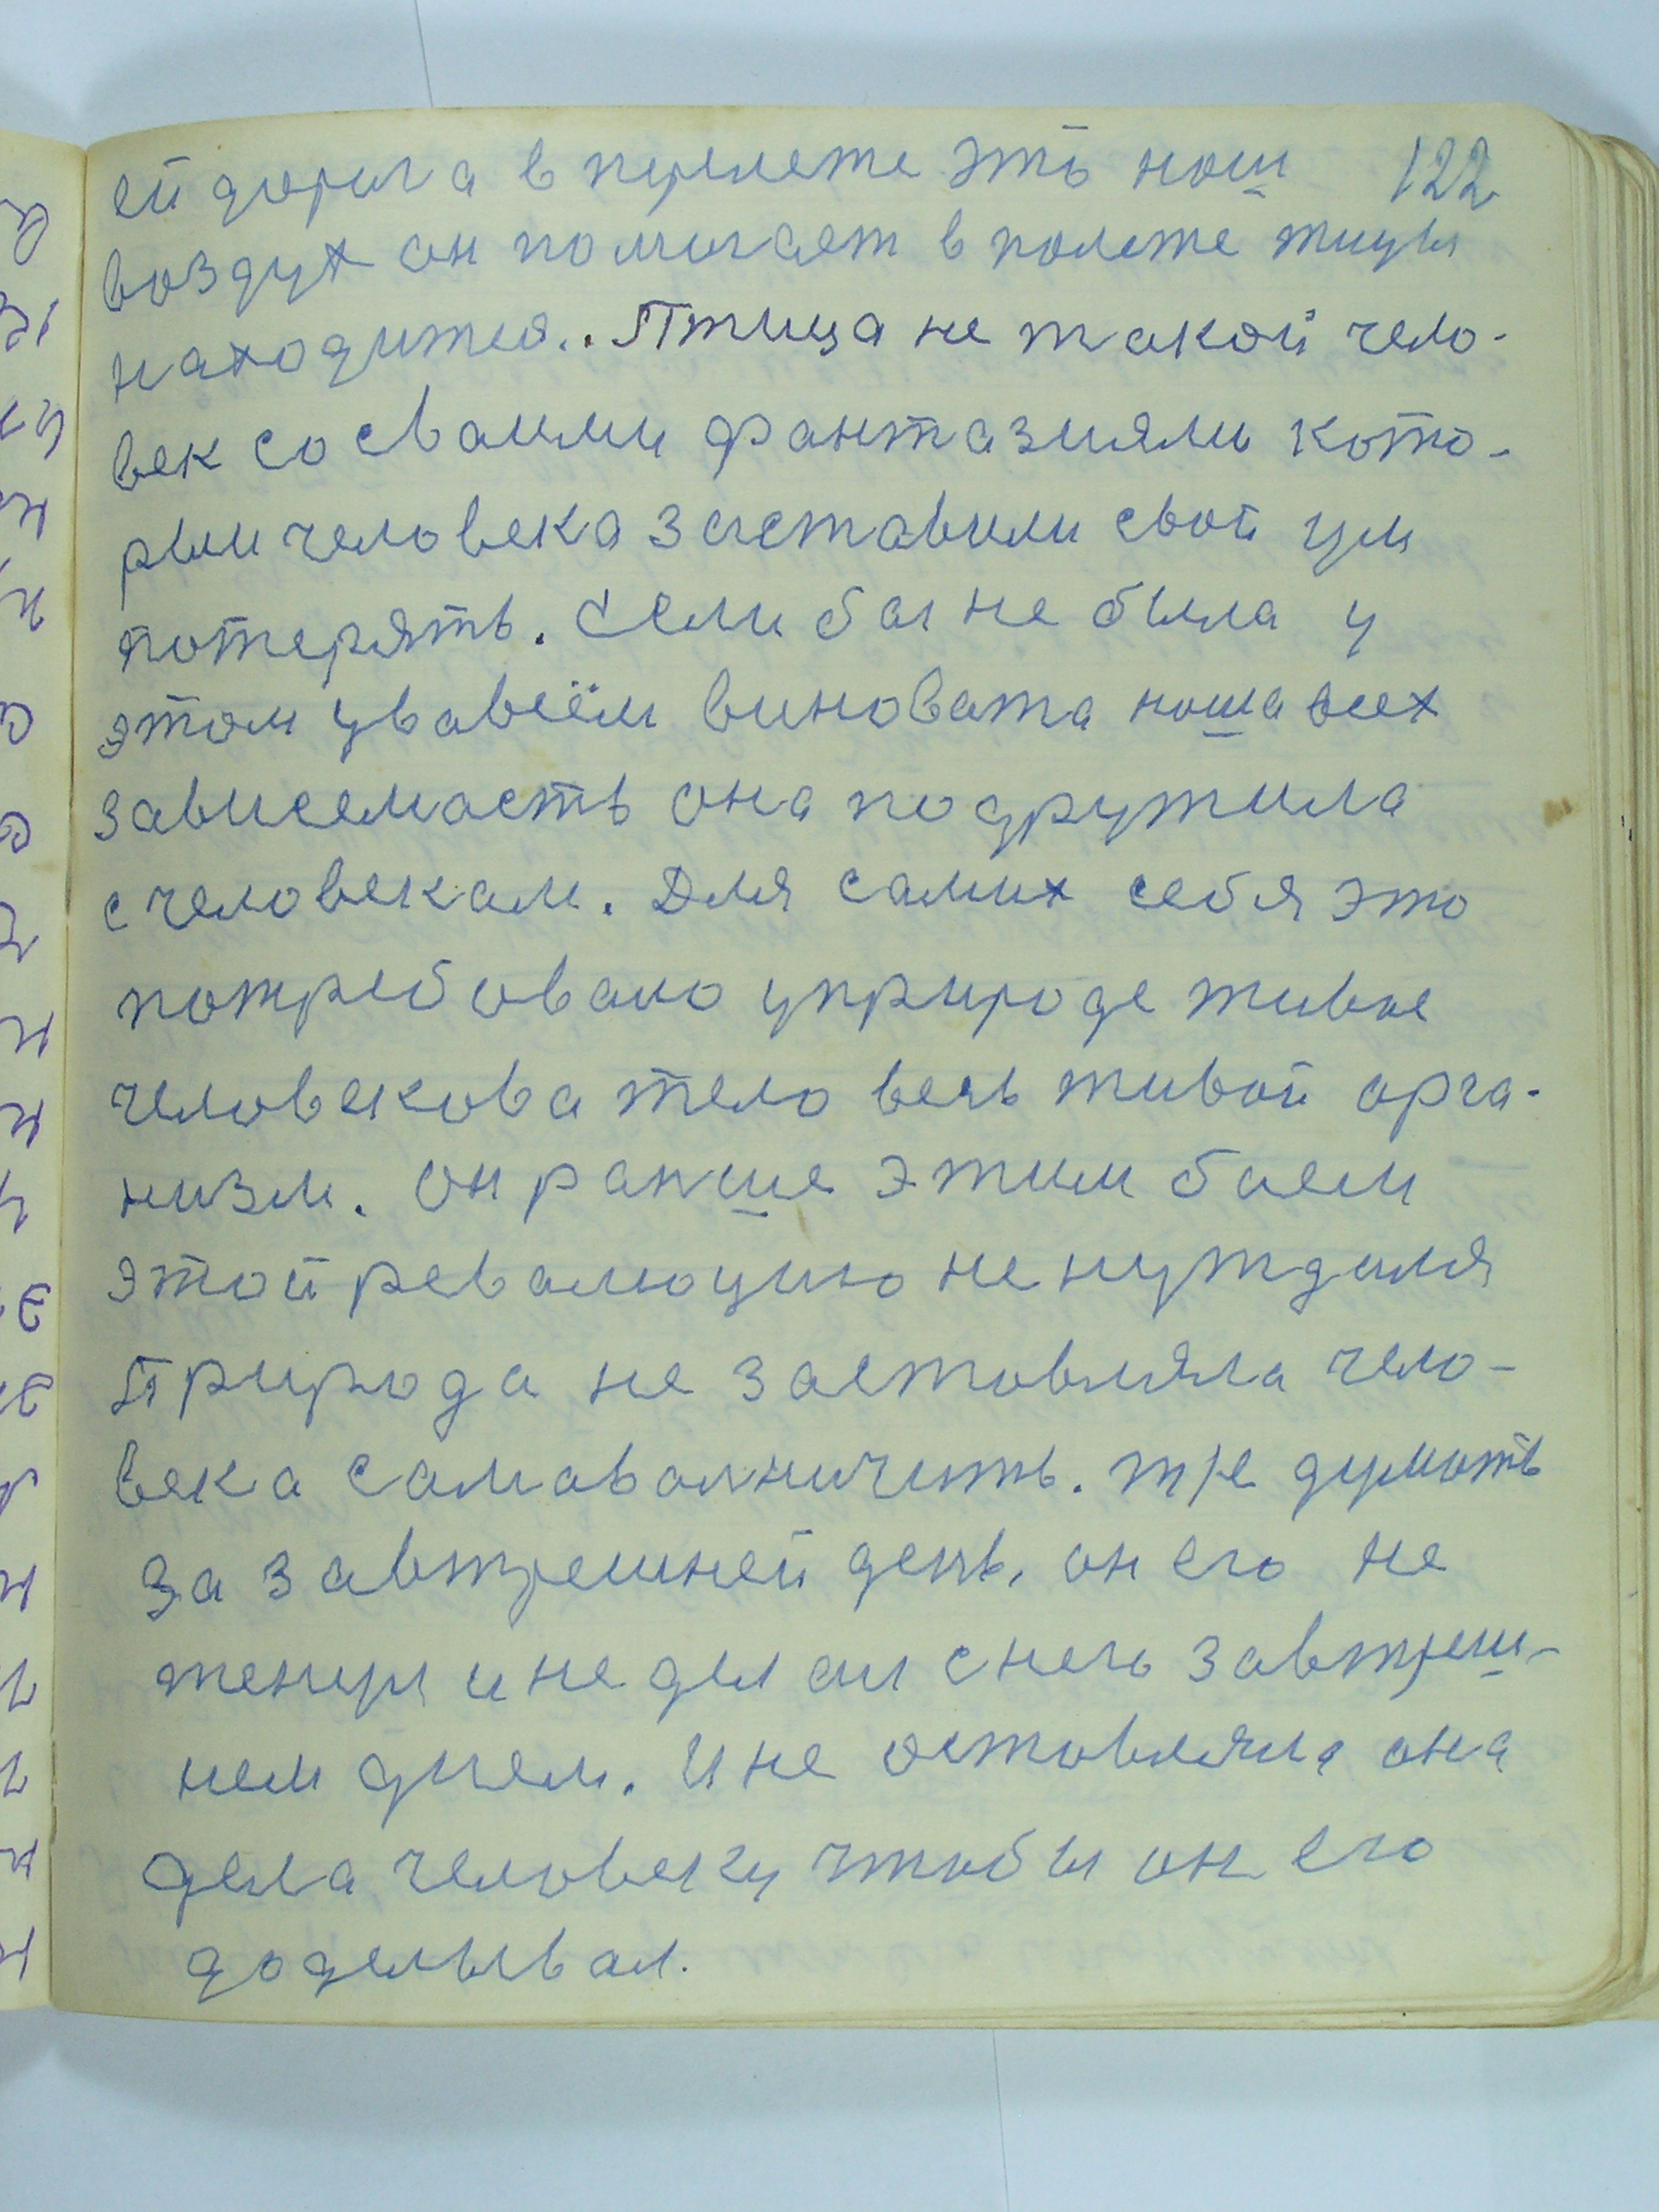 122
ей дорога в прелете это наш
воздух он помогает в полете тицы
находится.. Птица не такой чело-
век со своими фантазиями кото-
рыи человека заставили свой ум
потерять. Если бы не была у
этом увовсём виновата наша всех
зависемасть она подружила
с человекам. Для самих себя это
потребовало уприроде живое
человекова тело весь живой орга-
низм. Он ранше этим боем
этой революцию не нуждался
Природа не заставляла чело-
века самаволничить. тже думать
за завтрешней день, он его не
женул и не делал снего завтреш-
нем днем. И не оставляла она
дела человеку чтобы он его
доделывал.